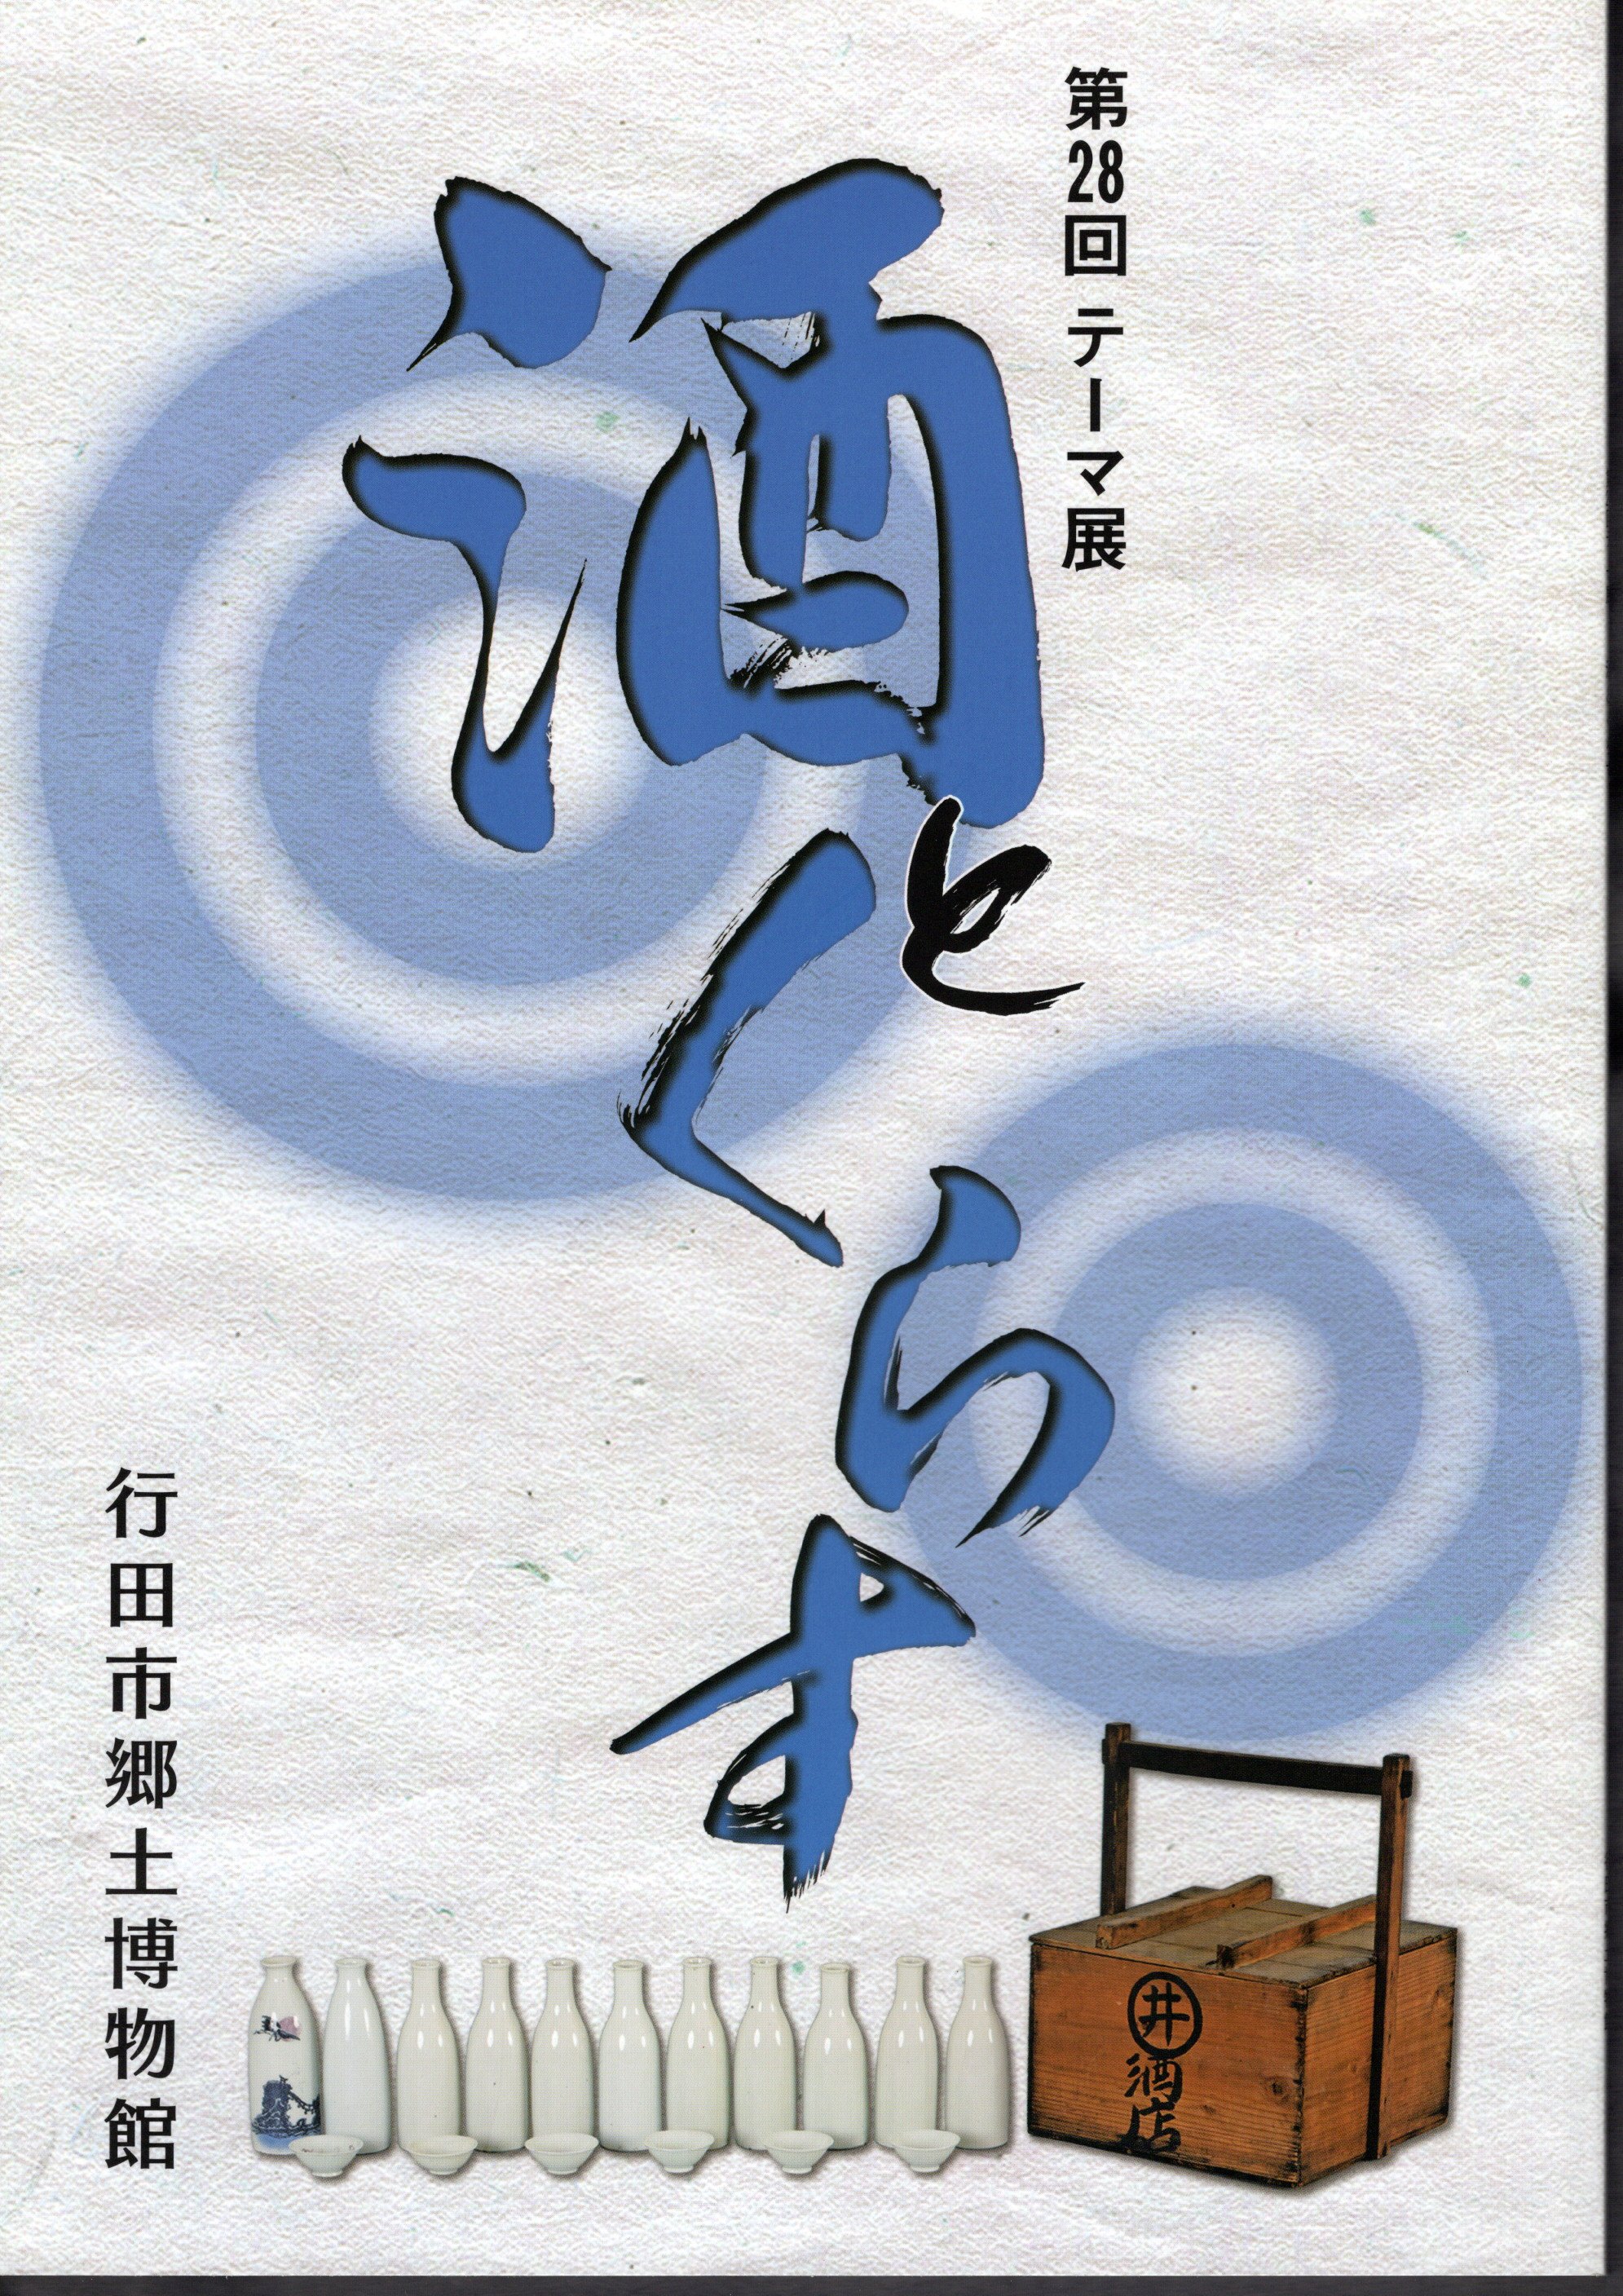 第28回 テーマ展
酒とくらす
行田市郷土博物館
井
酒店